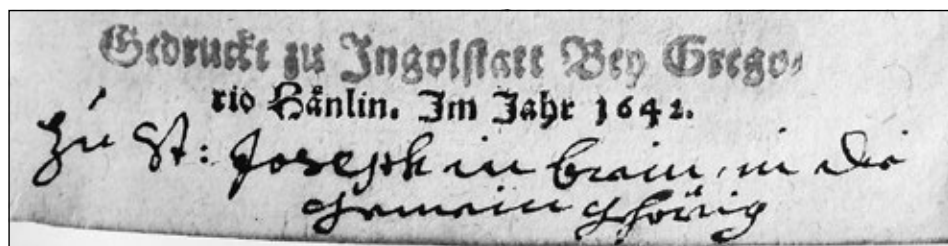 Gedruckt zu Ingolstatt Bey Grego-
rio Hänlin. Im Jahr 1642.
Zu St: Joseph in brein, in die
gemein ghörig